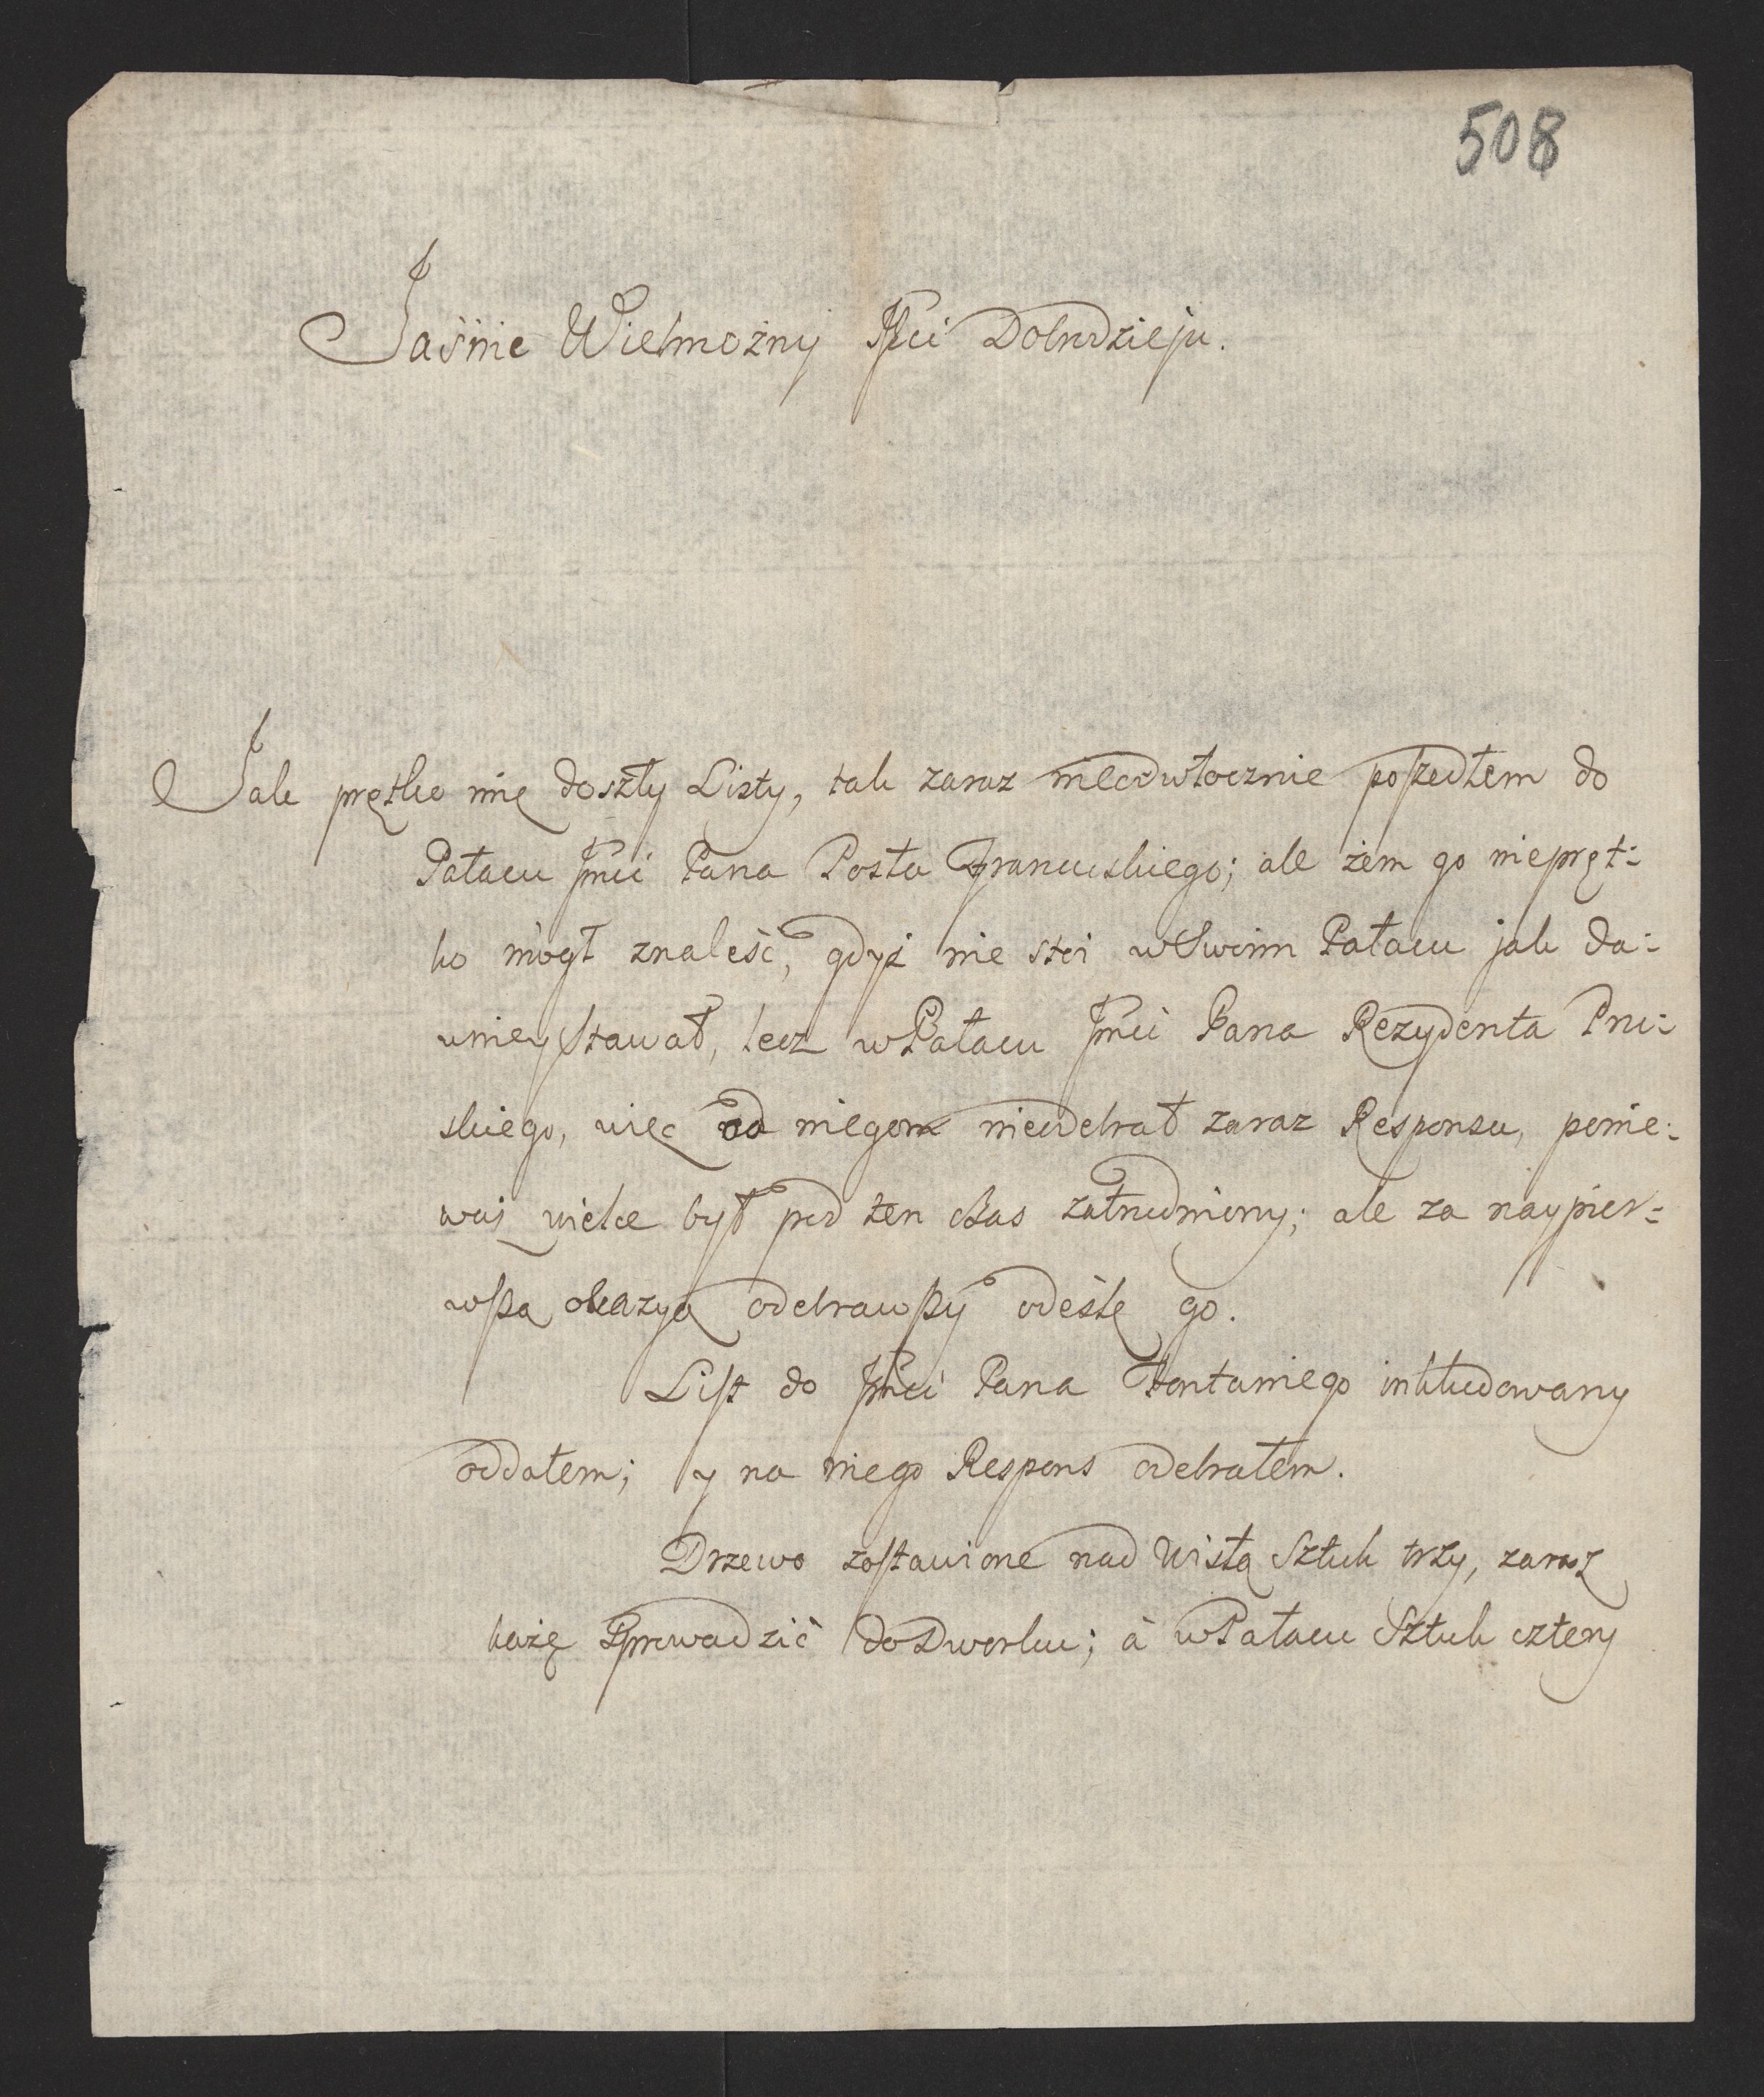 508
Jaśnie Wielmożny Mci Dobrodzieju.
Jak prętko mię doszły Listy, tak zaraz nieodwłocznie poszedłem do
Pałacu Jmci Pana Posła Francuskiego; ale żem go niepręt=
ko mógł znaleść, gdyż nie stoi w Swoim Pałacu jak da=
wniey stawał, lecz w Pałacu Jmci Pana Rezydenta Pru=
skiego, więc od niegom nieodebrał zaraz Responsu, ponie=
waż wielce był pod ten czas zatrudniony; ale za naypier=
wszą okazyą odebrawszy odeślę go.
List do Jmci Pana Fontaniego inkludowany
oddałem; y na niego Respons odebrałem.
Drzewo zostawione nad Wisłą Sztuk trzy, zaraz
każę sprowadzić do Dworku; à w Pałacu Sztuk cztery